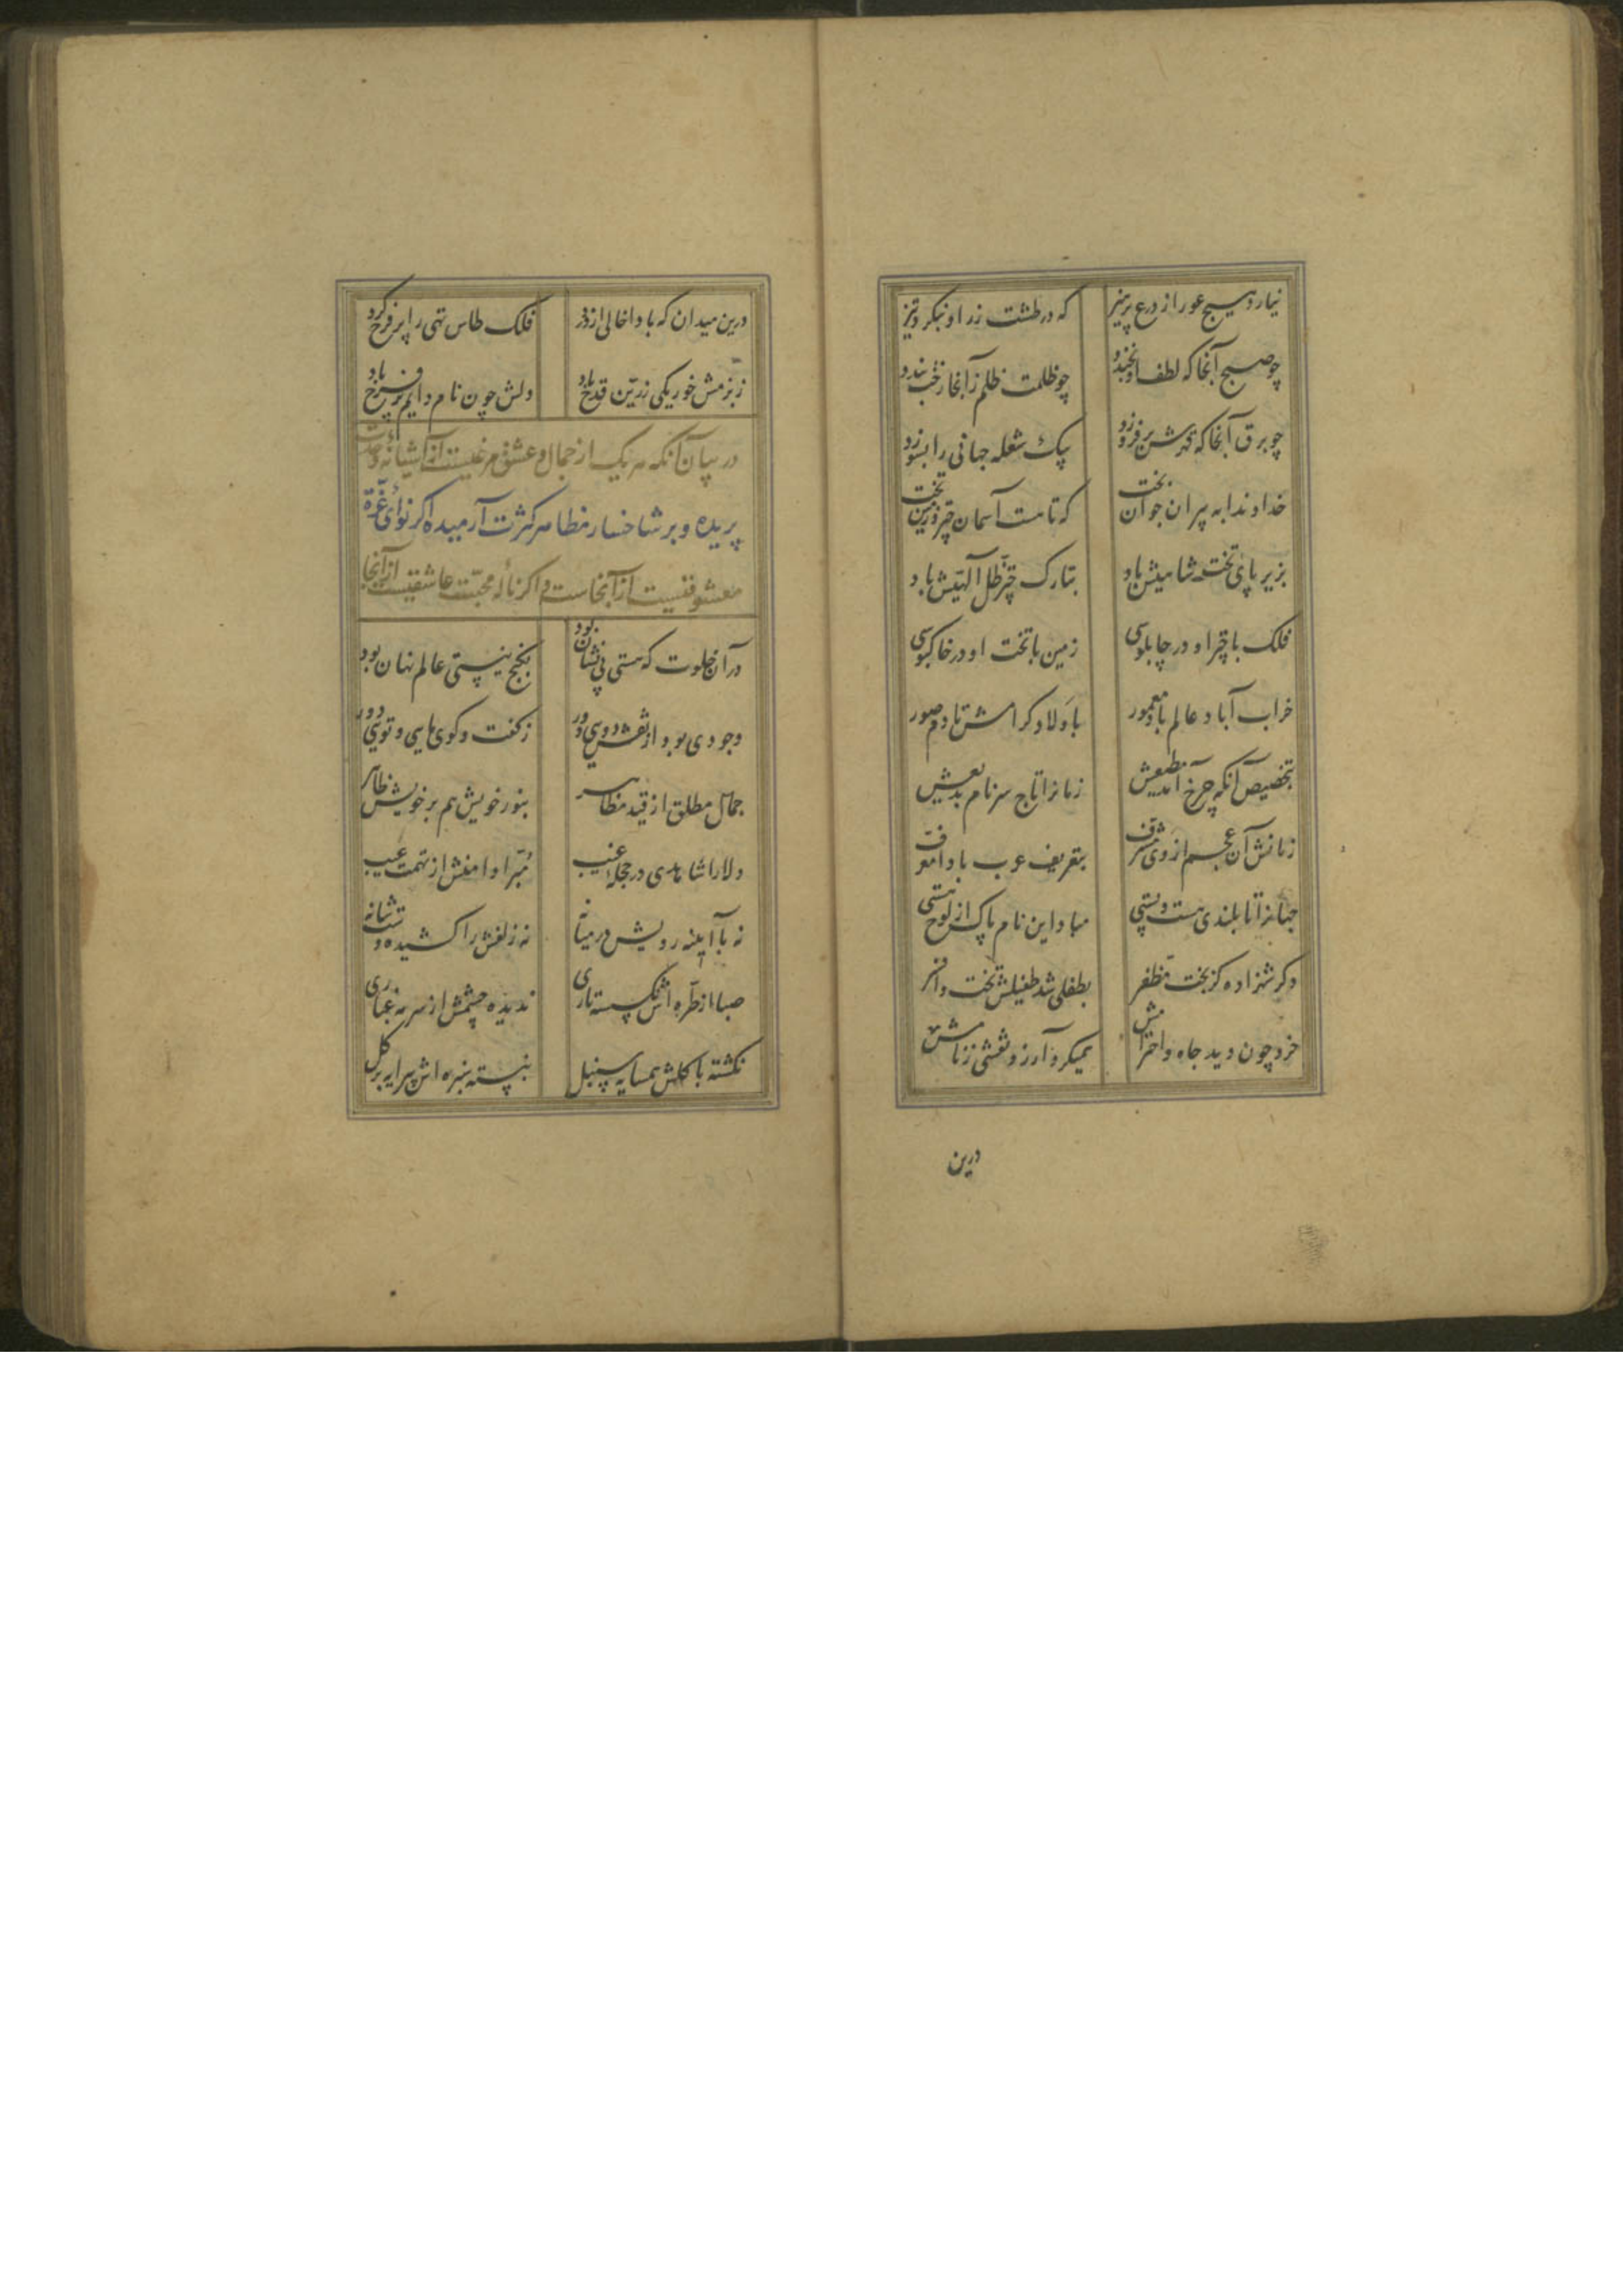 نیارد هیچ عور از درع پرهیز که در طشت زر او ننگرد تیز
چو صبح آنجا که لطف او بخندد چو ظلمت ظلم زآنجا رخت بندد
چو برق آنجا که قهرش برفروزد بیک شعله جهانی را بسوزد
خداوندا به پیران جوان بخت که تا هست آسمان چتر و زمین تخت
بزیر پای تخت شاهیش باد بتارک چتر ظل آلهیش باد
فلک با چتر او در چاپلوسی زمین با تخت او در خاکبوسی
خراب آباد عالم باد معمور باولاد کرامش تا دم صور
بتخصیص آنکه چرخ آمد مطیعش زمانرا تاج سر نام بدیعش
زمانش آن عجم از وی مشرف بتعریف عرب بادا معرف
جهانرا تا بلندی هست و پستی مباد این نام پاک از لوح هستی
دگر شهزاده کز بخت مظفر بطفلی شد طفیلش تخت و افسر
خرد چون دید جاه و احترامش همیکرد آرزو نقشی ز نامش
درین
درین میدان که بادا خالی از درد فلک طاس تهی را پر فرح کرد
ز بزمش خور یکی زرین قدح باد دلش چون نام دایم پر فرح باد
در بیان آنکه هر یک از جمال و عشق مرغیست از آشیانه وحدت
پریده و بر شاخسار مظاهر کثرت آرمیده اگر نوای عزه
معشوقیست از آنجاست و اگر ناله محبت عاشقیست از آنجا
در آن خلوت که هستی بی نشان بود بکنج نیستی عالم نهان بود
وجودی بود از نقش دویی دور ز گفت و گوی مایی و تویی دور
جمال مطلق از قید مظاهر بنور خویش هم بر خویش ظاهر
دلارا شاهدی در حجله غیب مبرا دامنش از تهمت عیب
نه با آیینه رویش در میانه نه زلفش را کشیده دست شانه
صبا از طره اش نگسسته تاری ندیده چشمش از سرمه غباری
نگشته با گلش همسایه سنبل نبسته سبزه اش پیرایه بر گل